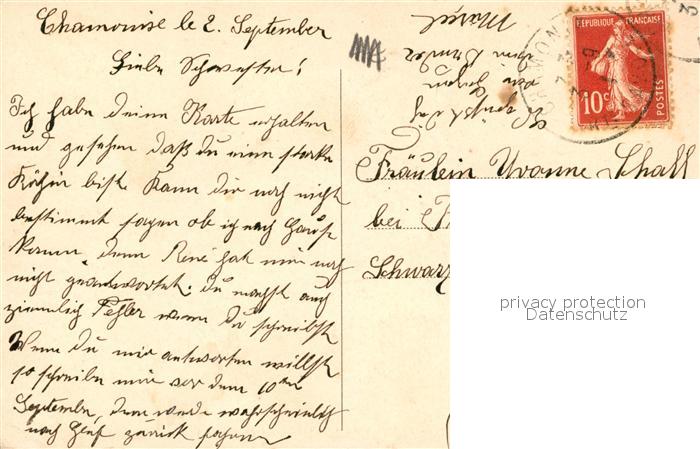 Chamonix le 2. September
Liebe Schwester!
Ich habe deine Karte erhalten
und gesehen daß du eine starke
Köchin bist. Kann dir noch nicht
bestimmt sagen ob ich nach Hause
komme, denn René hat mir noch
nicht geantwortet. Du machst auch
ziemlich Fehler wenn du schreibst
Wenn du mir antworten willst
so schreibe mir vor dem 10ten
September, denn werde wahrscheinlich
nach Genf zurück fahren
Marcel
RÉPUBLIQUE FRANÇAISE
10c
POSTES
Fräulein Yvonne Schall
bei
Schwarz
privacy protection
Datenschutz